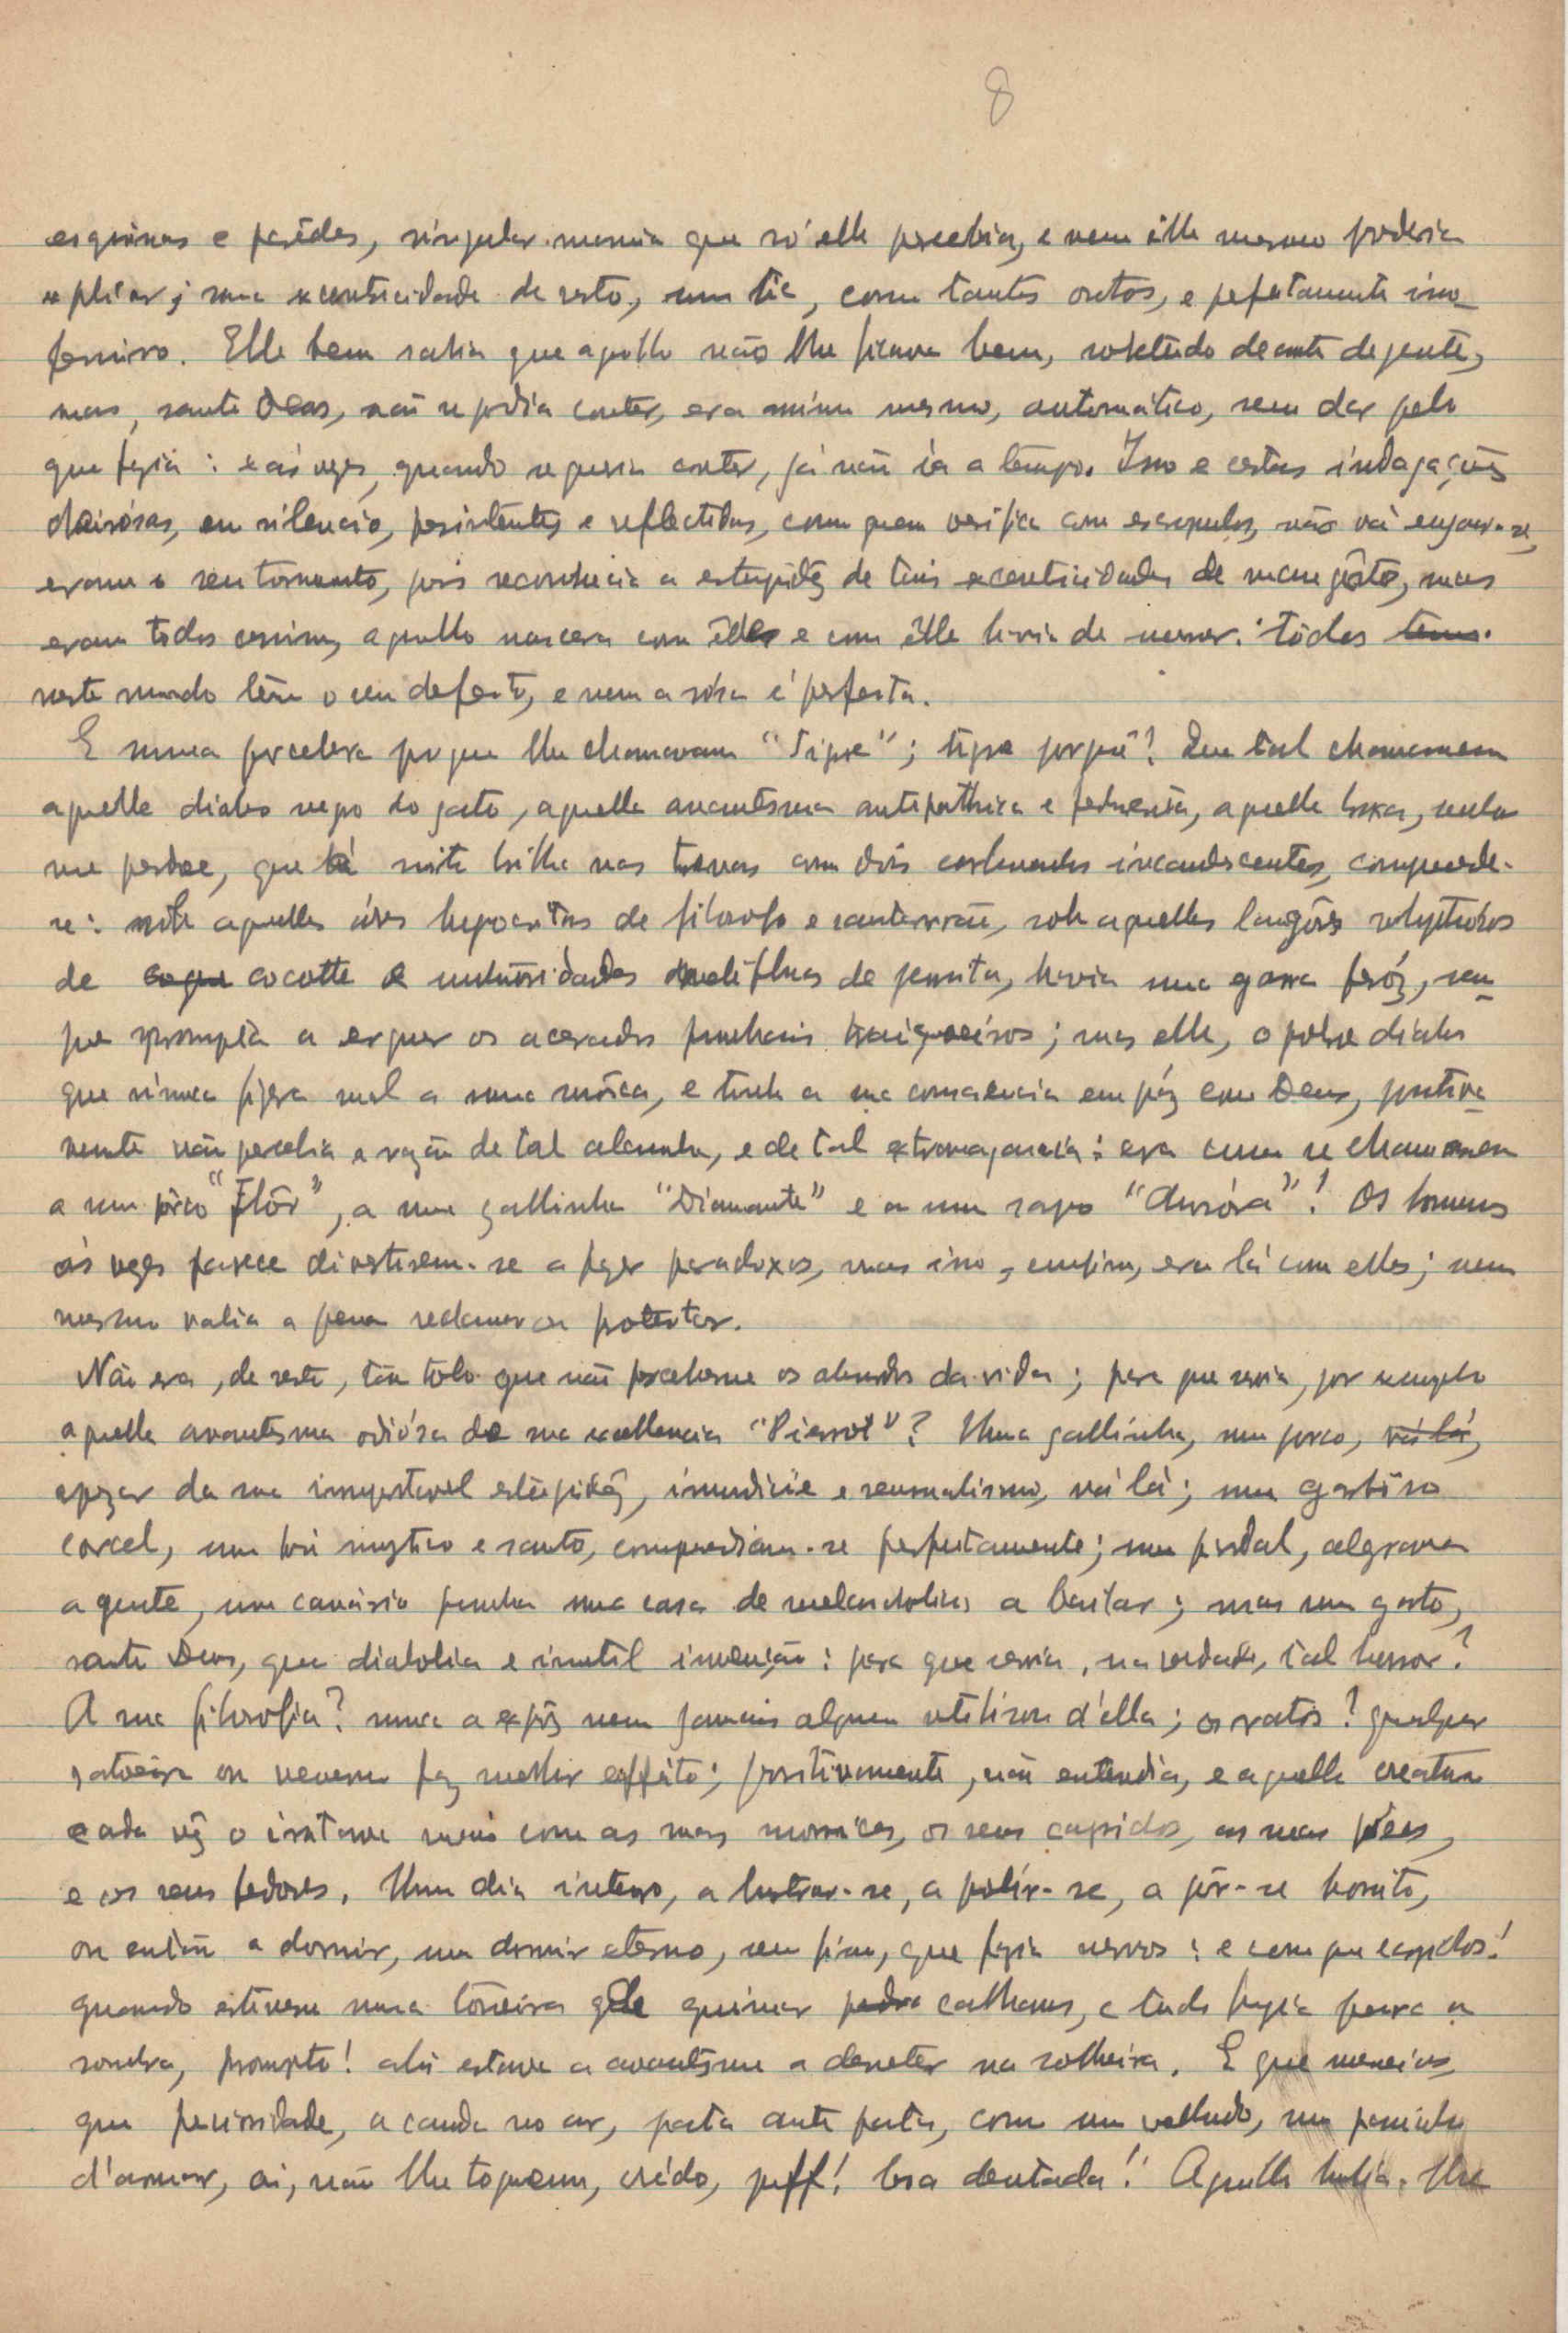 8
esquinas e parêdes, singular mania que só elle percebia, e nem êlle mesmo poderia
explicar; uma excentricidade de resto, um tic, como tantos outros, e perfeitamente ino-
fensivo. Elle bem sabia que aquillo não lhe ficava bem, sobretudo deante de gente,
mas, santo Deus, não se podia conter, era assim mesmo, automático, sem dar pelo
que fazia: e ás vezes, quando se queria conter, já não ía a tempo. Isso e certas indagações
cheirósas, em silencio, persistentes e reflectidas, como quem verifica com escrupulos, não vá enganar-se,
eram o seu tormento, pois reconhecia a estupidêz de tais excentricidades de mau gôsto, mas
eram todos assim, aquillo nascera com êlle e com êlle havia de morrer: tôdos têm
neste mundo têm o seu defeito, e nem a rósa é perfeita.
E nunca percebera porque lhe chamavam "Tigre"; tigre porquê? Que tal chamassem
aquelle diabo negro do gato, aquella avantesma antipathica e , aquella bruxa, Senhor
me perdoe, que á noite brilha nas trevas com dois carbunculos incandescentes, comprehende-
se: sob aquelles áres hypocritas de filosofo e santarrão, sob aquelles langôres voluptuosos
de coque cocotte e melifluas de jesuita, havia uma garra feróz, sem-
pre prompta a erguer os acerados punhais traiçoeiros; mas elle, o pobre diabo
que nunca fizera mal a uma môsca, e tinha a sua consciencia em páz com Deus, positiva-
mente não percebia a razão de tal alcunha, e de tal extravagancia: era como se chamassem
a um pôrco "Flôr", a uma gallinha "Diamante" e a um sapo "Auróra"! Os homens
ás vezes parece divertirem-se a fazer paradoxos, mas isso, emfim, era lá com elles; nem
mesmo valia a pena reclamar ou protestar.
Não era, de resto, tão tolo que não percebesse os absurdos da vida; para que servia, por exemplo
aquella avantesma odiósa de sua excellencia "Pierrot"? Uma gallinha, um porco, vá lá,
apezar da sua insuportavel estupidêz, imundicie e sensualismo, vá lá; um garbôso
corcel, um boi mystico e santo, comprehendiam-se perfeitamente; um pardal, alegrava
a gente, um canário punha uma casa de melancholias a bailar; mas um gato,
santo Deus, que diabolica e inutil invenção: para que servia, na verdade, tal horror?
A sua filosofia? nunca a expôz nem jamais alguem utilisou d'ella; os ratos? qualquer
ratoeira ou veneno faz melhor effeito; positivamente, não entendia, e aquella creatura
cada vêz o irritava mais com as suas momices, os seus cupidos, as suas
e os seus fedores. Um dia inteiro, a lustrar-se, a polír-se, a pôr-se bonito,
ou então a dormir, um dormir eterno, sem fim, que fazia nervos: e com que escandalos!
quando estivesse uma torreira de queimar pedra calhaus, e tudo fugia para a
sombra, prompto! ali estava a avantesma a derreter na solheira. E que meneios,
que preciosidade, a cauda no ar, pata ante pata, como um velludo, um
d'amor, ai, não lhe toquem, crédo, puff! boa dentada! Aquillo bulia-lhe